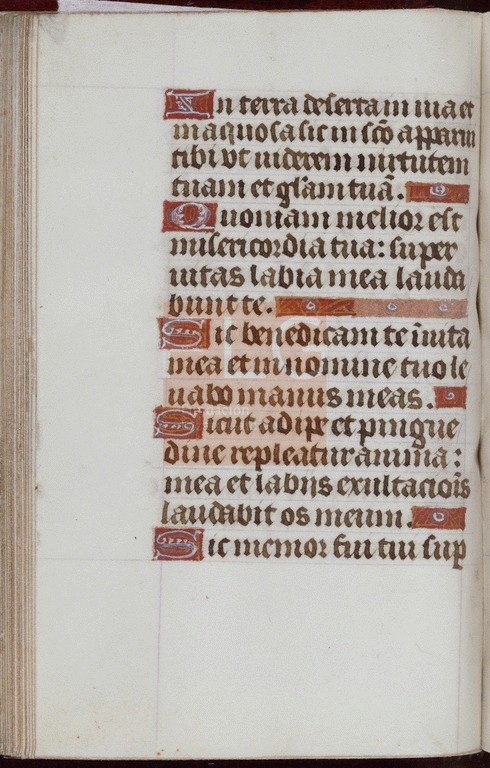 In terra deserta in uia et
inaquosa sic in sc̄o apparui
tibi vt uiderem uirtutem
tuam et gl̄am tuā.
Quoniam melior est
misericordia tua: super
uitas labia mea lauda
bunt te.
Sic benedicam te ī uita
mea et in nomine tuo le
uabo manus meas.
Sicut adipe et pingue
dine repleatur anima:
mea et labijs exultacioīs
laudabit os meum.
Sic memor fui tui sup̄